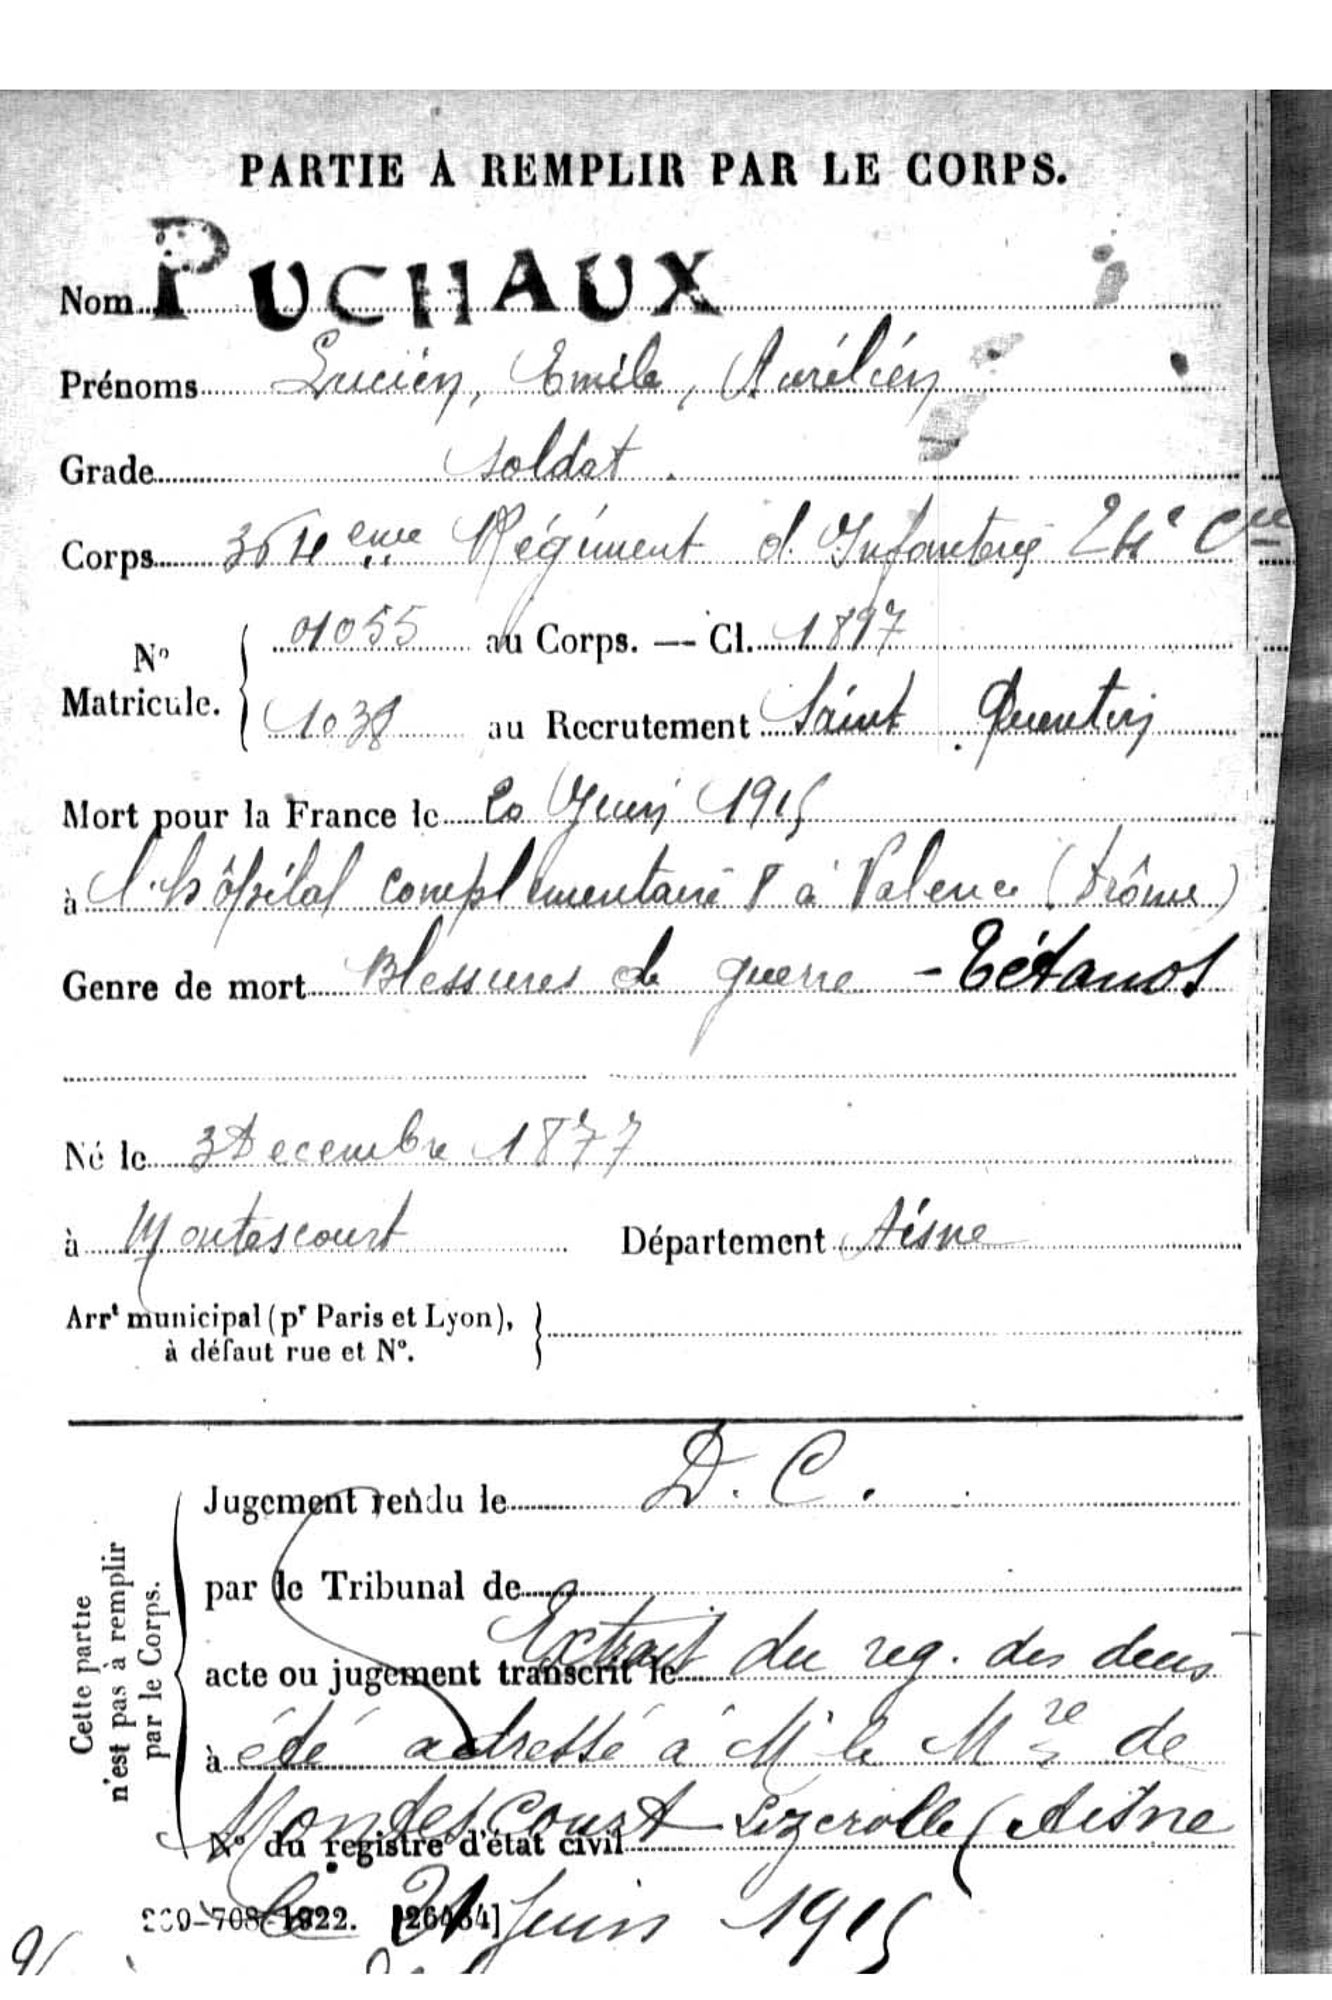 PARTIE À REMPLIR PAR LE CORPS.
Nom PUCHAUX
Prénoms Lucien, Emile, Aurélien
Grade soldat.
Corps 364 eme Régiment d'Infanterie 24e Cie
No Matricule. { 01055 au Corps. — Cl. 1897
1038 au Recrutement Saint Quentin
Mort pour la France le 20 Juin 1915
à l'hôpital complémentaire 8 à Valence (Drôme)
Genre de mort Blessures de guerre - Tétanos
Né le 3 Décembre 1877
à Montescourt Département Aisne
Arrt municipal (pr Paris et Lyon),
à défaut rue et No. }
Cette partie
n'est pas à remplir
par le Corps.
Jugement rendu le D. C.
par le Tribunal de
acte ou jugement transcrit le Extrait du reg. des deces
à été adressé à Mr le Mre de
Montescourt Lizerolles (Aisne
No du registre d'état civil
le 21 Juin 1915
-708-1922. [26434]